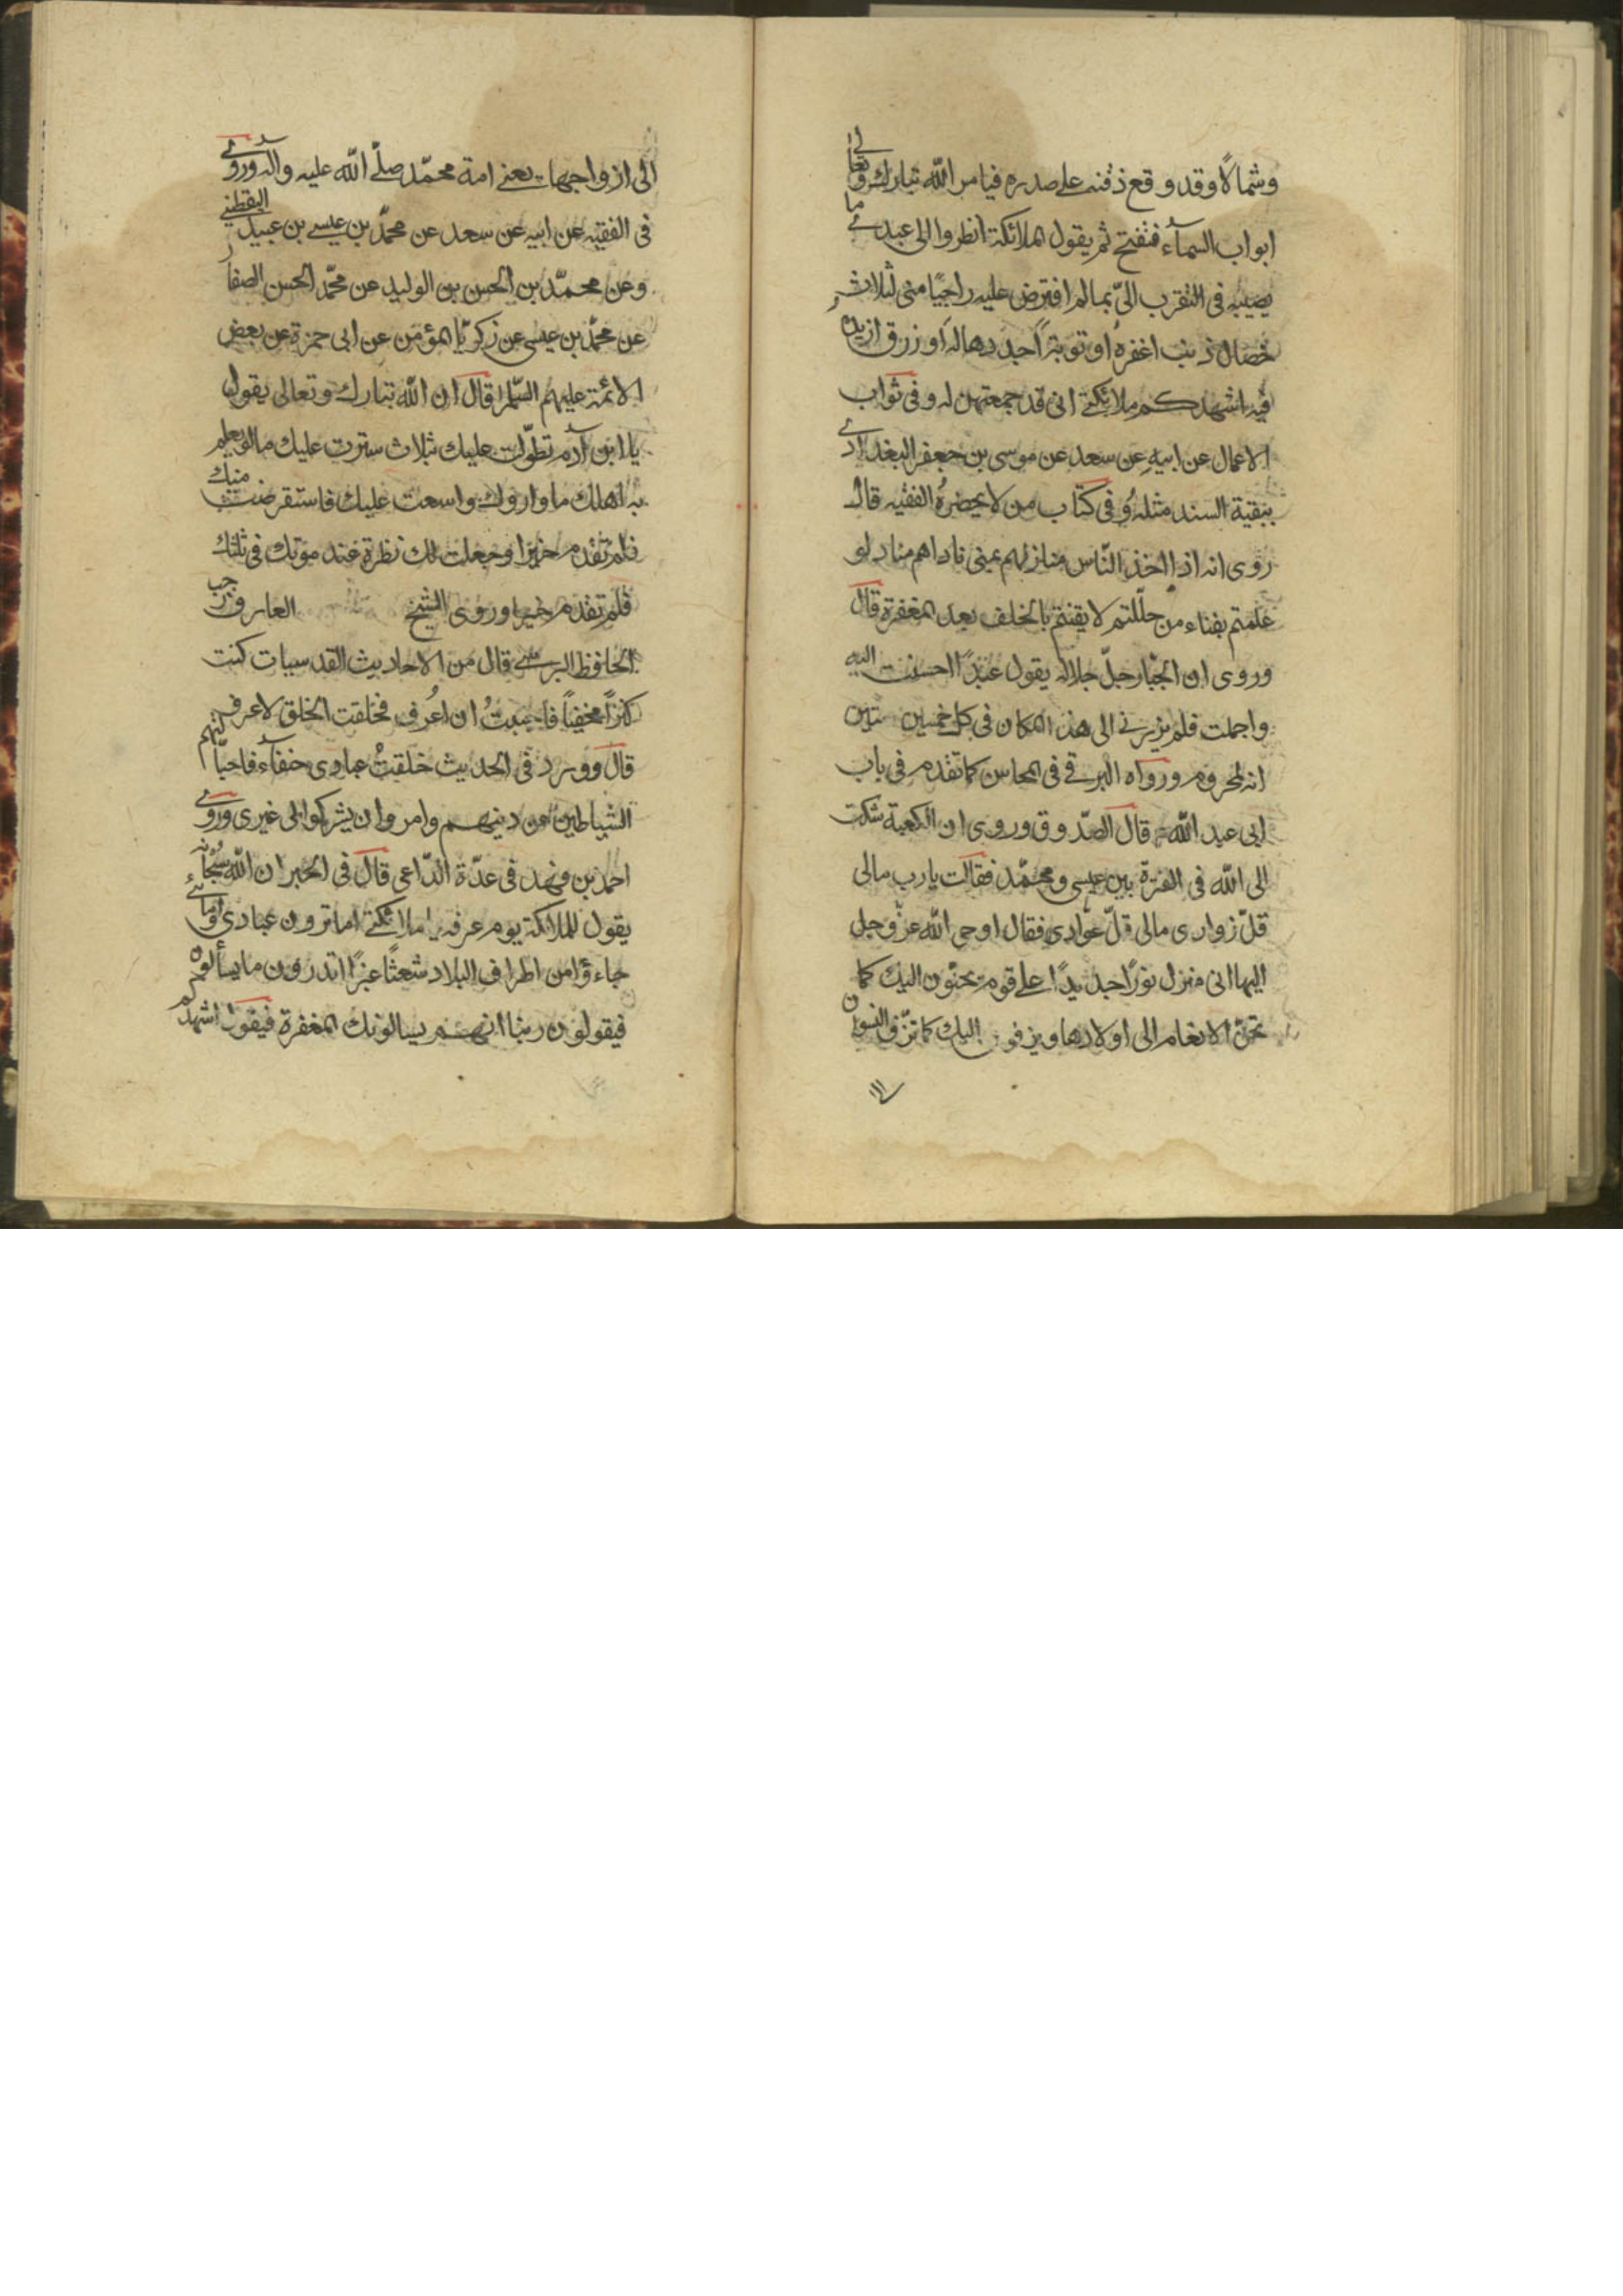 وشمالًا وقد وقع ذقنه على صدره فيامر الله تبارك وتعالى
ابواب السمآء فتفتح ثم يقول الملائكة انظروا الى عبدي ما
يصيبه في التقرب الىّ بمالم افترض عليه راجيًا منى لثلاث
خصال ذنب اغفرهُ او توبةً اجددها له او زرق ازيده
فيه اشهدكم ملائكتى انى قد جمعتهن له وفي ثواب
الاعمال عن ابيه عن سعد عن موسى بن جعفر البغدادى
ببقية السند مثله وفى كتاب من لايحضرهُ الفقيه قال
روى انه اذا اخذ النّاس منازلهم بمنى ناداهم مناد لو
علمتم بفناء من حللتم لايقنتم بالخلف بعد المغفرة قال
وروى ان الجبّار جلّ جلاله يقول عبدًا احسنت اليه
واجملت فلم يزرنى الى هذا المكان فى كل خمس سنين
انه لمحروم ورواه البرقى فى المحاسن كما تقدم فى باب
ابى عبد الله قال الصّدوق وروى ان الكعبة شكت
الى الله فى الفترة بين عيسى ومحمّد فقالت يا رب مالى
قلّ زوارى مالى قلّ عوّادى فقال اوحى الله عزّوجل
اليها انى منزل نورًا جديدًا على قوم يحنّون اليك كما
تحنّ الانعام الى اولادها ويزفون اليك كما تزّف النسوان
الى ازواجها يعنى امة محمّد صلّى الله عليه وآله وروى
فى الفقيه عن ابيه عن سعد عن محمّد بن عيسى بن عبيد اليقطينى
وعن محمّد بن الحسن بن الوليد عن محمّد الحسن الصفار
عن محمّد بن عيسى عن زكريّا المؤمن عن ابى حمزة عن بعض
الائمة عليهم السّلم قال ان الله تبارك وتعالى يقول
يا ابن آدم تطوّلت عليك بثلاث سترت عليك مالو يعلم
به اهلك ما واروك واوسعت عليك فاستقرضت منك
فلم تقدم خيرا وجعلت لك نظرة عند موتك فى ثلثك
فلم تقدم خيرا وروى الشيخ العارف رجب
الحافظ البرسى قال من الاحاديث القدسيات كنت
كنزًا مخفيًا فاحببتُ ان اُعرف فخلقت الخلق لاعرف
قال وورد فى الحديث خلقتُ عبادى حنفآء فاحتالتهم
الشياطين عن دينهم وامروا ان يشركوا بى غيرى وروى
احمد بن فهد فى عدّة الدّاعى قال فى الخبر ان الله سبحانه
يقول للملائكة يوم عرفه يا ملائكتى اما ترون عبادى وامائى
جاءوا من اطراف البلاد شعثًا غبرًا اتدرون ما يسألون
فيقولون ربنا انهم يسالونك المغفرة فيقول اشهدكم